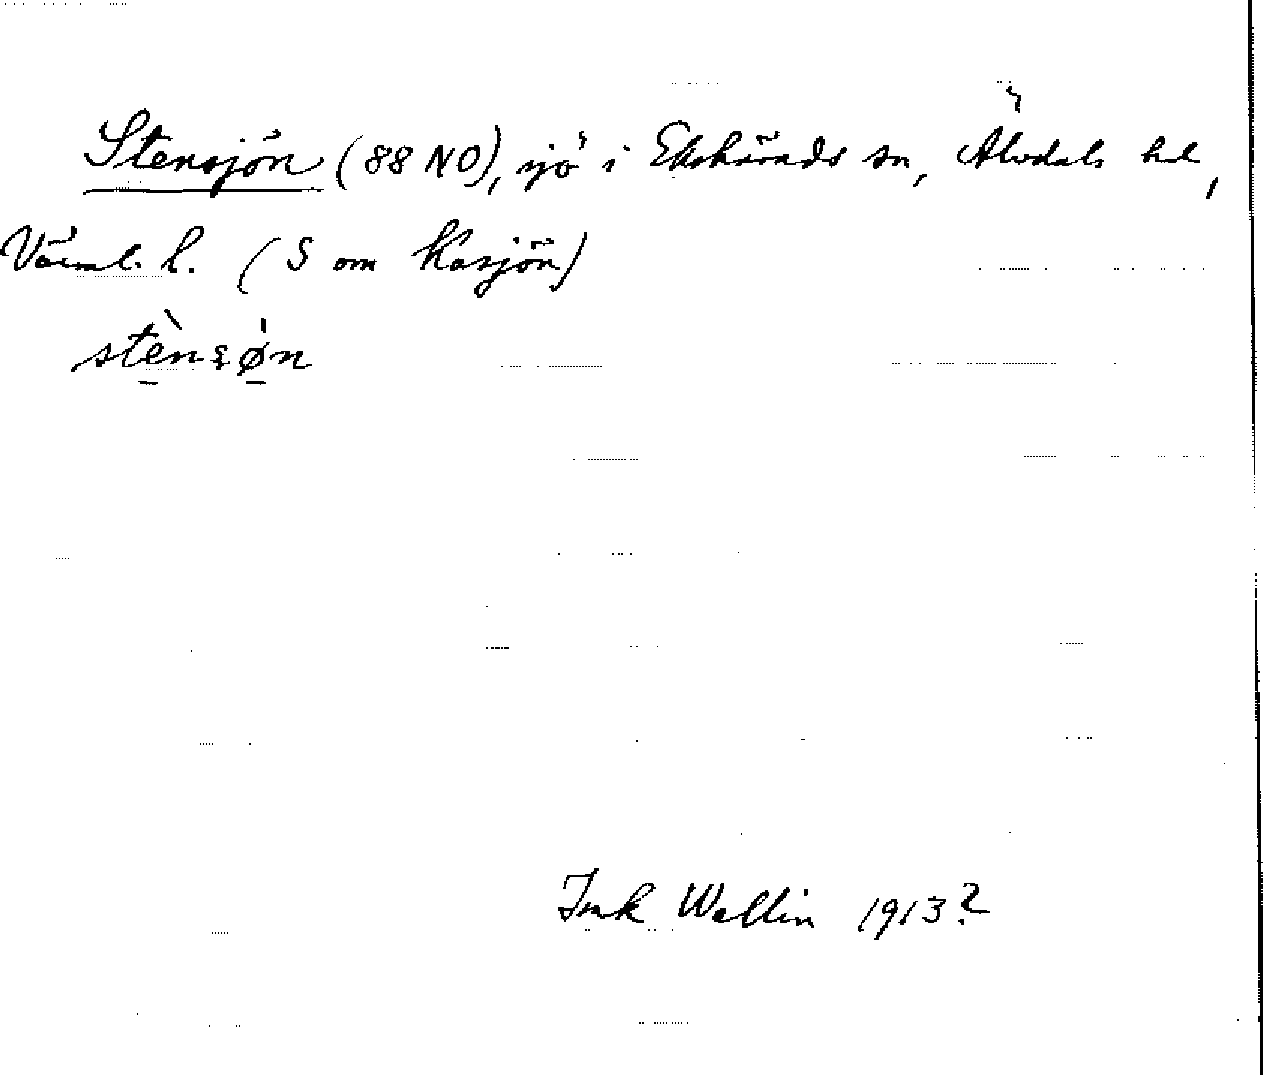 Stensjön (88 NO), sjö i Ekshärads sn, Älvdals hd,
Värml. l. (S om Kasjön)
stènsø̀n
Ink Wallin 1913?